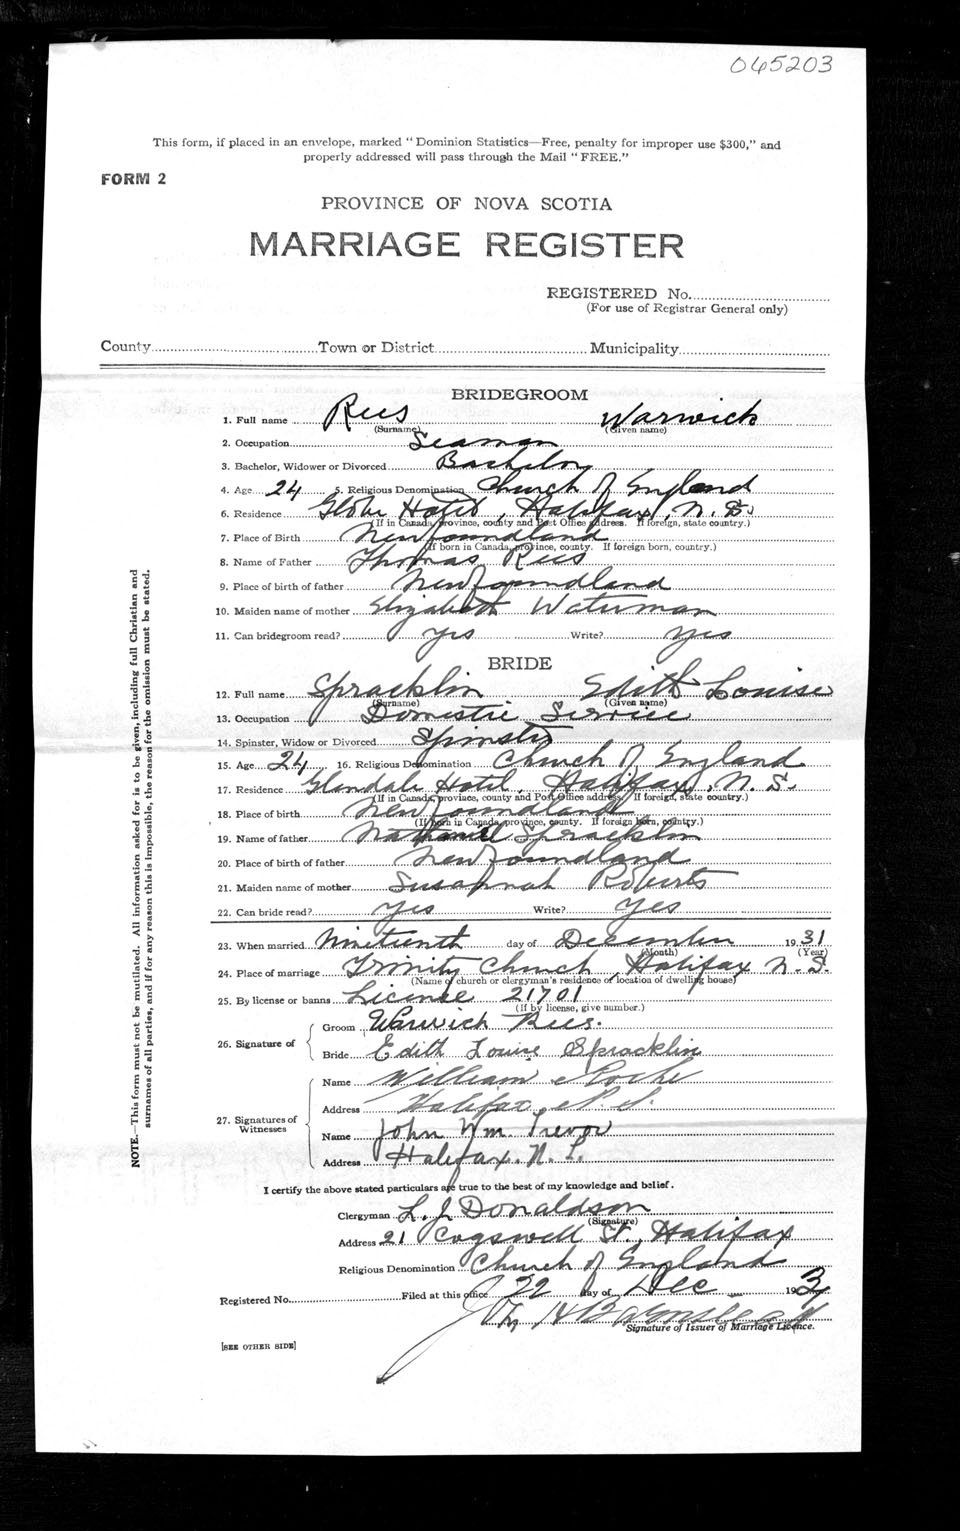 065203
This form, if placed in an envelope, marked "Dominion Statistics—Free, penalty for improper use $300," and
properly addressed will pass through the Mail "FREE."
FORM 2
PROVINCE OF NOVA SCOTIA
MARRIAGE REGISTER
REGISTERED No.
(For use of Registrar General only)
County Town or District Municipality
BRIDEGROOM
1. Full name Rees Warwick
(Surname) (Given name)
2. Occupation Seaman
3. Bachelor, Widower or Divorced Bachelor
4. Age 24 5. Religious Denomination Church of England
6. Residence Globe Hotel, Halifax, N.S.
(If in Canada, province, county and Post Office address. If foreign, state country.)
7. Place of Birth Newfoundland
(If born in Canada, province, county. If foreign born, country.)
8. Name of Father Thomas Rees
9. Place of birth of father Newfoundland
10. Maiden name of mother Elizabeth Waterman
11. Can bridegroom read? yes Write? yes
BRIDE
12. Full name Spracklin Edith Louise
(Surname) (Given name)
13. Occupation Domestic Service
14. Spinster, Widow or Divorced Spinster
15. Age 24 16. Religious Denomination Church of England
17. Residence Glendale Hotel, Halifax, N.S.
(If in Canada, province, county and Post Office address. If foreign, state country.)
18. Place of birth Newfoundland
(If born in Canada, province, county. If foreign born, country.)
19. Name of father Nathaniel Spracklin
20. Place of birth of father Newfoundland
21. Maiden name of mother Susannah Roberts
22. Can bride read? yes Write? yes
23. When married Nineteenth day of December 1931
(Month) (Year)
24. Place of marriage Trinity Church, Halifax N.S.
(Name of church or clergyman's residence or location of dwelling house)
25. By license or banns License 21701
(If by license, give number.)
26. Signature of Groom Warwick Rees.
Bride Edith Louise Spracklin
27. Signatures of Witnesses Name William Roche
Address Halifax, N.S.
Name John Wm. Trevor
Address Halifax. N.S.
I certify the above stated particulars are true to the best of my knowledge and belief.
Clergyman L. J. Donaldson
(Signature)
Address 21 Cogswell St., Halifax
Religious Denomination Church of England
Registered No. Filed at this office 22 day of Dec 193
Signature of Issuer of Marriage Licence.
[SEE OTHER SIDE]
NOTE.—This form must not be mutilated. All information asked for is to be given, including full Christian and
surnames of all parties, and if for any reason this is impossible, the reason for the omission must be stated.